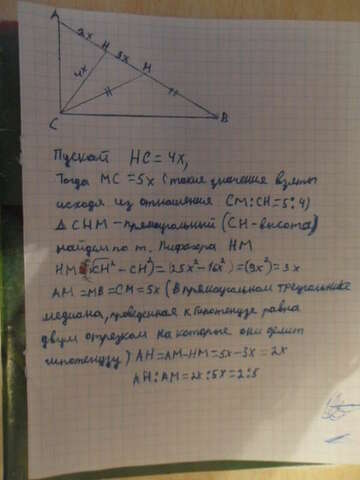 A
2x
H
3x
M
4x
C
B
Пускай HC = 4x,
Тогда MC = 5x (такие значение взяты
исходя из отношения CM:CH = 5:4)
Δ CHM – прямоугольный (CH – высота)
найдем по т. Пифагора HM
HM = √CH² – CH² = (25x² – 16x²) = (9x²) = 3x
AM = MB = CM = 5x (В прямоугольном треугольнике
медиана, проведенная к гипотенузе равна
двум отрезкам на которые они делит
гипотенузу) AH = AM – HM = 5x – 3x = 2x
AH : AM = 2x : 5x = 2:5